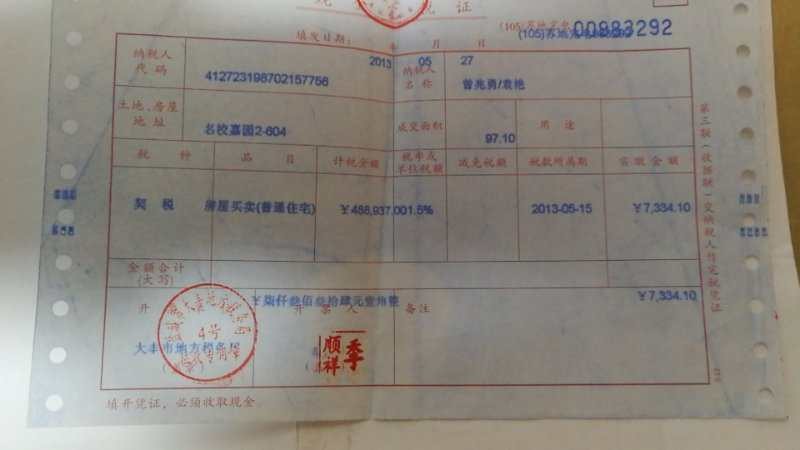 证
(105)苏地完电 00983292
填发日期： 年 月 日
2013 05 27
纳税人代码 412723198702157756 纳税人名称 曾兆勇/袁艳
土地、房屋地址 名校嘉园2-604 成交面积 97.10 用途
税种 品目 计税金额 税率或单位税额 减免税额 税款所属期 实缴金额
契税 房屋买卖(普通住宅) ￥488,937.00 1.5% 2013-05-15 ￥7,334.10
金额合计(大写) ￥柒仟叁佰叁拾肆元壹角整 ￥7,334.10
开票人 备注
大丰市地方税务局
4号
季顺祥
填开凭证，必须收取现金。
第三联(收据联)交纳税人作完税凭证